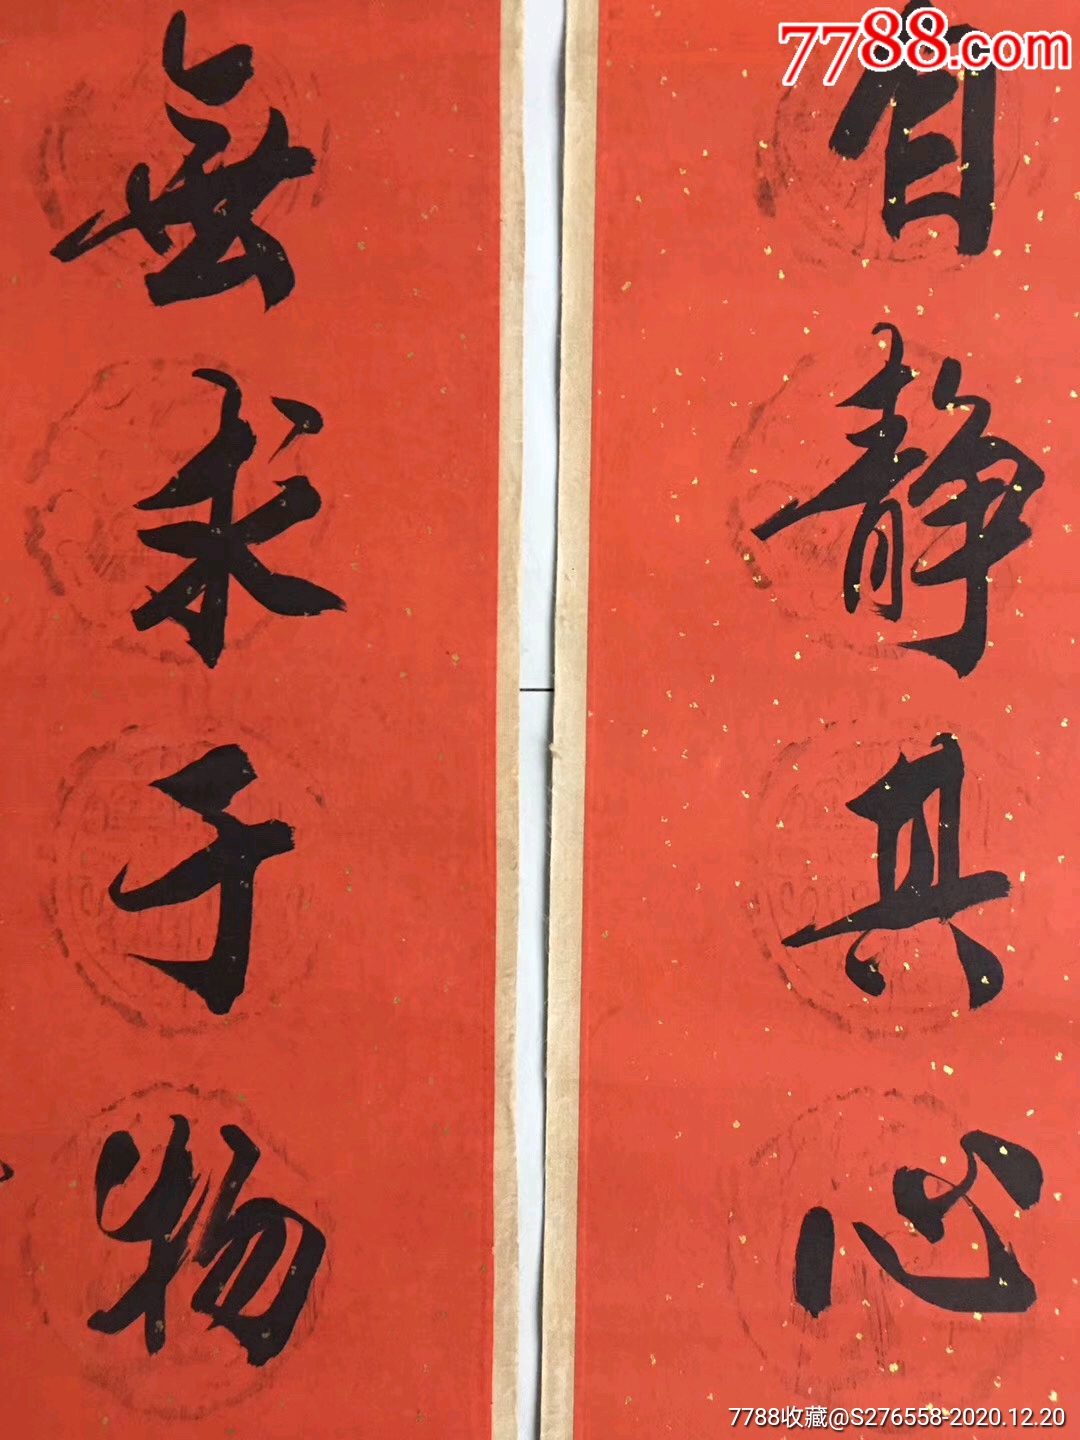 7788.com
自静其心
無求于物
7788收藏@S276558-2020.12.20